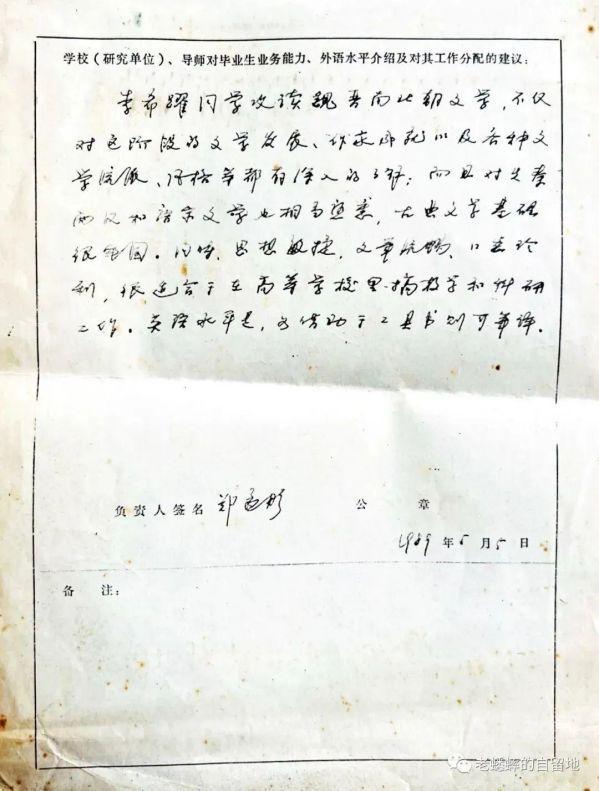 学校(研究单位)、导师对毕业生业务能力、外语水平介绍及对其工作分配的建议:
李希跃同学攻读魏晋南北朝文学,不仅
对这阶段的文学发展、作家成就以及各种文
学流派、风格等都有深入的了解;而且对先秦
两汉和唐宋文学也相当熟悉,古典文学基础
很牢固。同时,思想敏捷,文章流畅,口齿伶
利,很适合于在高等学校里搞教学和科研
工作。英语水平是,如借助于工具书则可笔译。
负责人签名 郑孟彤 公 章
1989年5月5日
备 注:
老蟋蟀的自留地